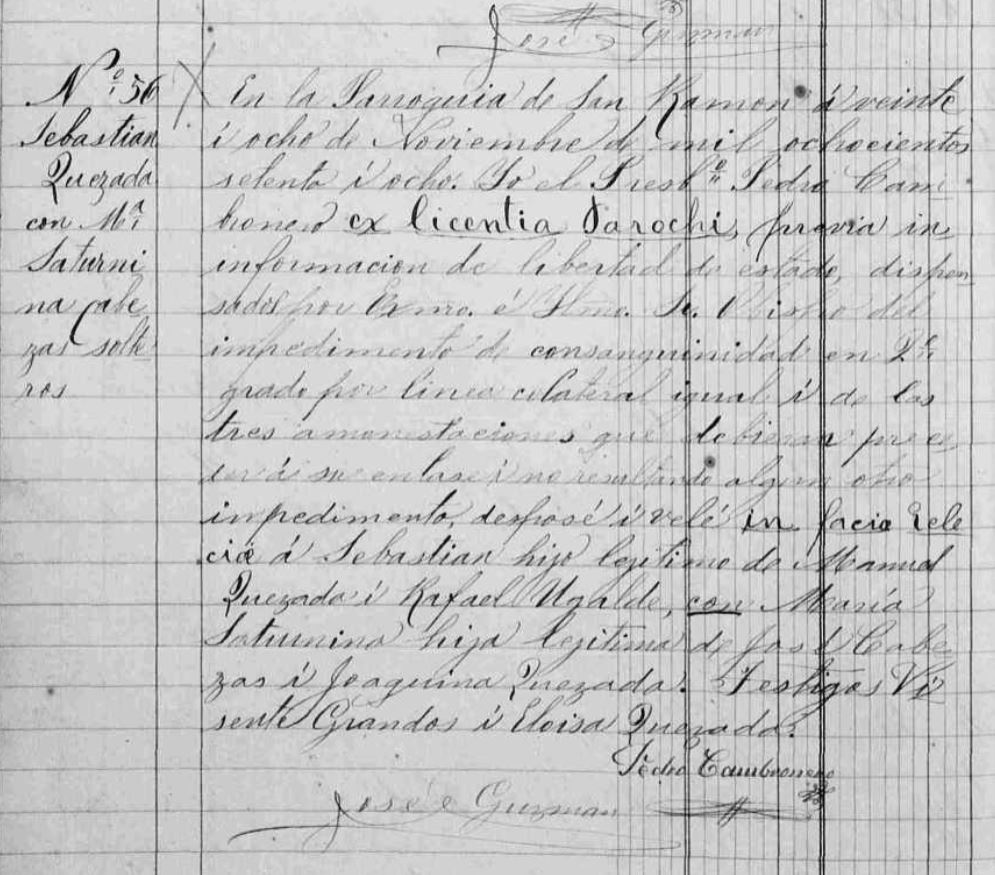 José Guzman
Nº 56
Sebastian
Quezada
con Mª
Saturni
na Cabe
zas solte
ros
En la Parroquia de San Ramon á veinte
i ocho de Noviembre de mil ochocientos
setenta i ocho. Yo el Presbº Pedro Cam
bronero ex licentia Parochi, previa in
informacion de libertad de estado, dispen
sados por Exmo. é Iltmo. Sr. Obispo del
impedimento de consanguinidad en 2º
grado por linea colateral igual i de las
tres amonestaciones que debieran prece
der á su enlase i no resultando algun otro
impedimento, desposé i velé in facie Ecle
cie á Sebastian hijo legitimo de Manuel
Quezada i Rafael Ugalde, con María
Saturnina hija legitima de José Cabe
zas i Joaquina Quezada. Testigos Vi
sente Grandos i Eloisa Quezada.
Pedro Cambronero
José Guzman